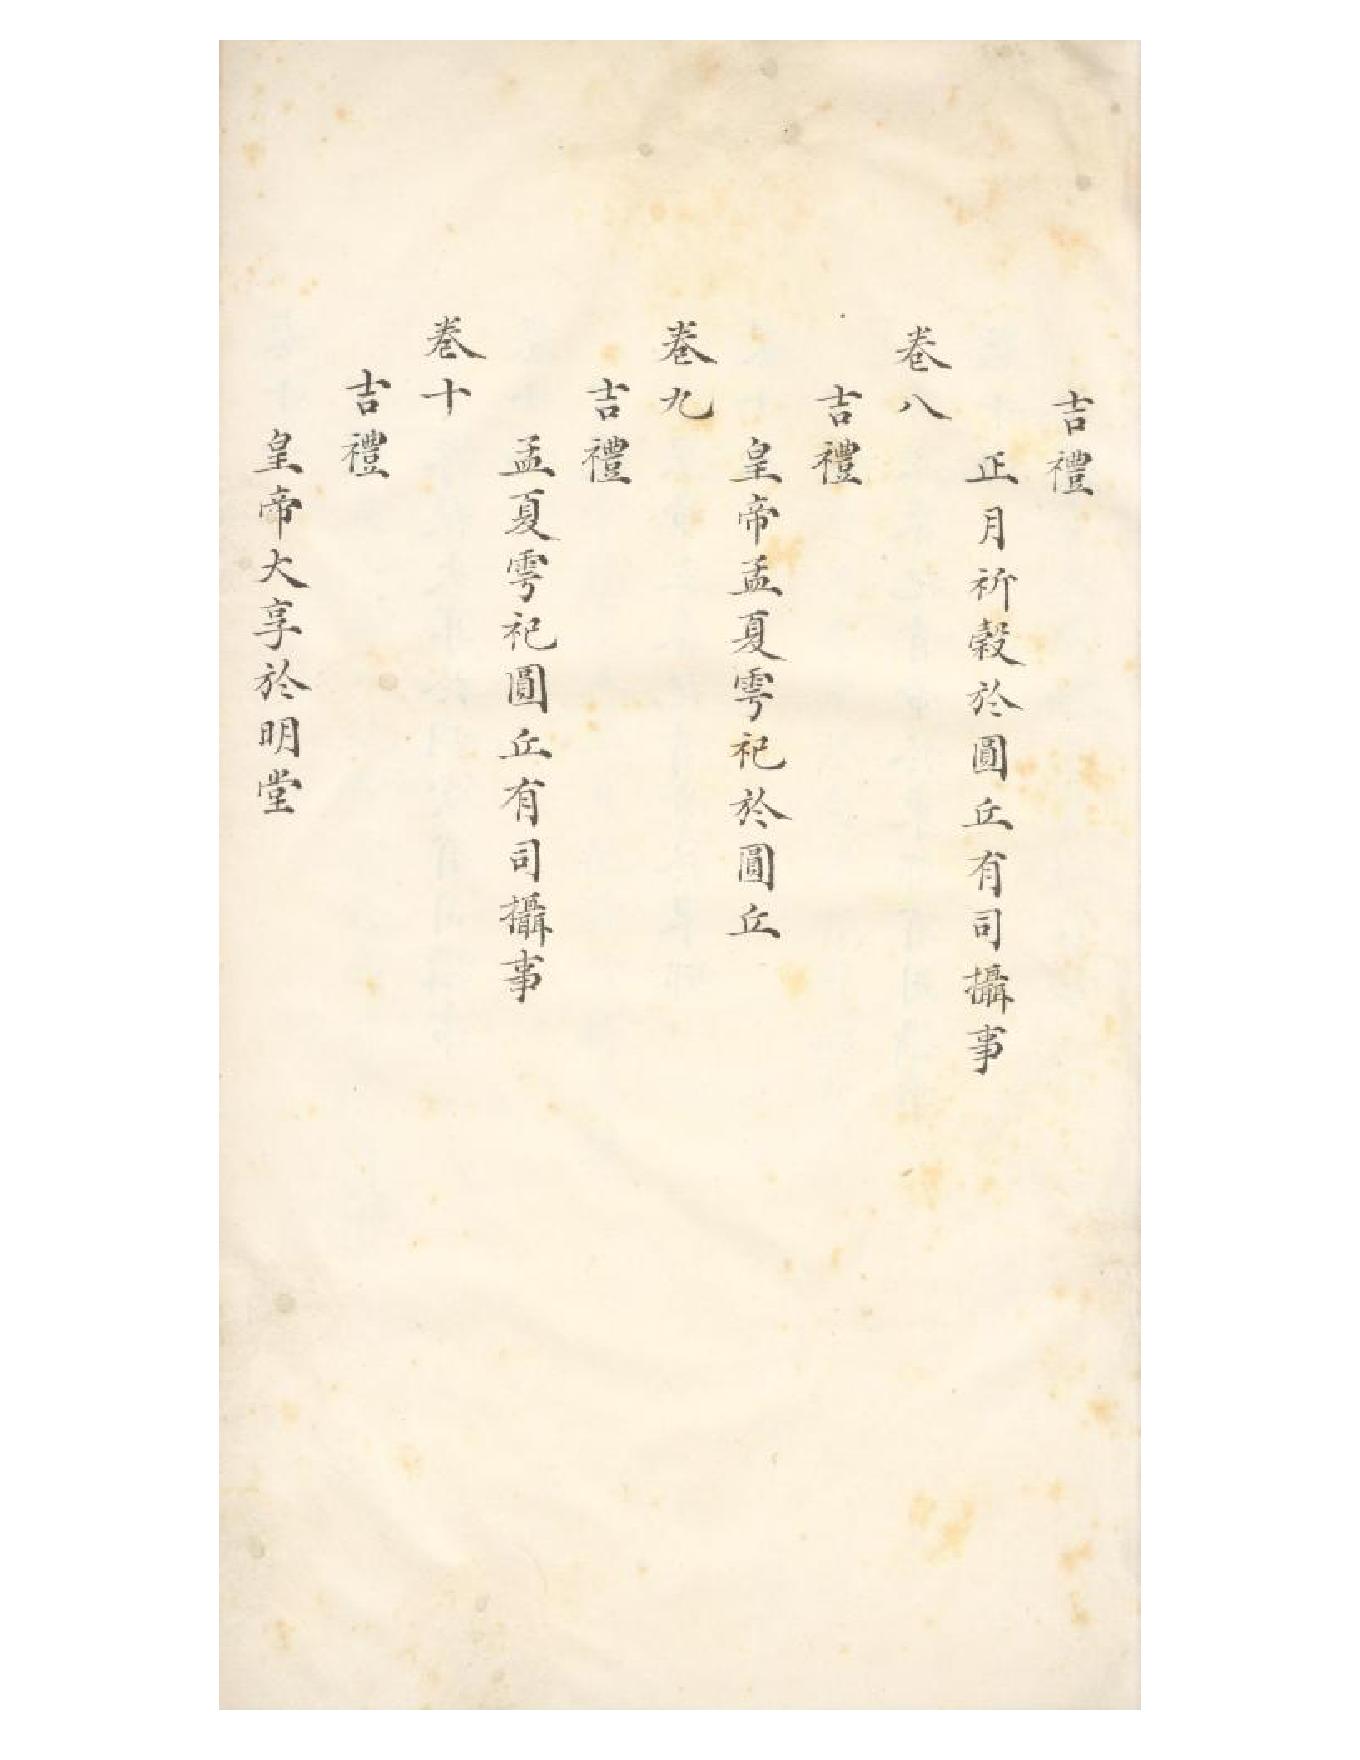 吉禮
正月祈穀於圓丘有司攝事
卷八
吉禮
皇帝孟夏雩祀於圓丘
卷九
吉禮
孟夏雩祀圓丘有司攝事
卷十
吉禮
皇帝大享於明堂